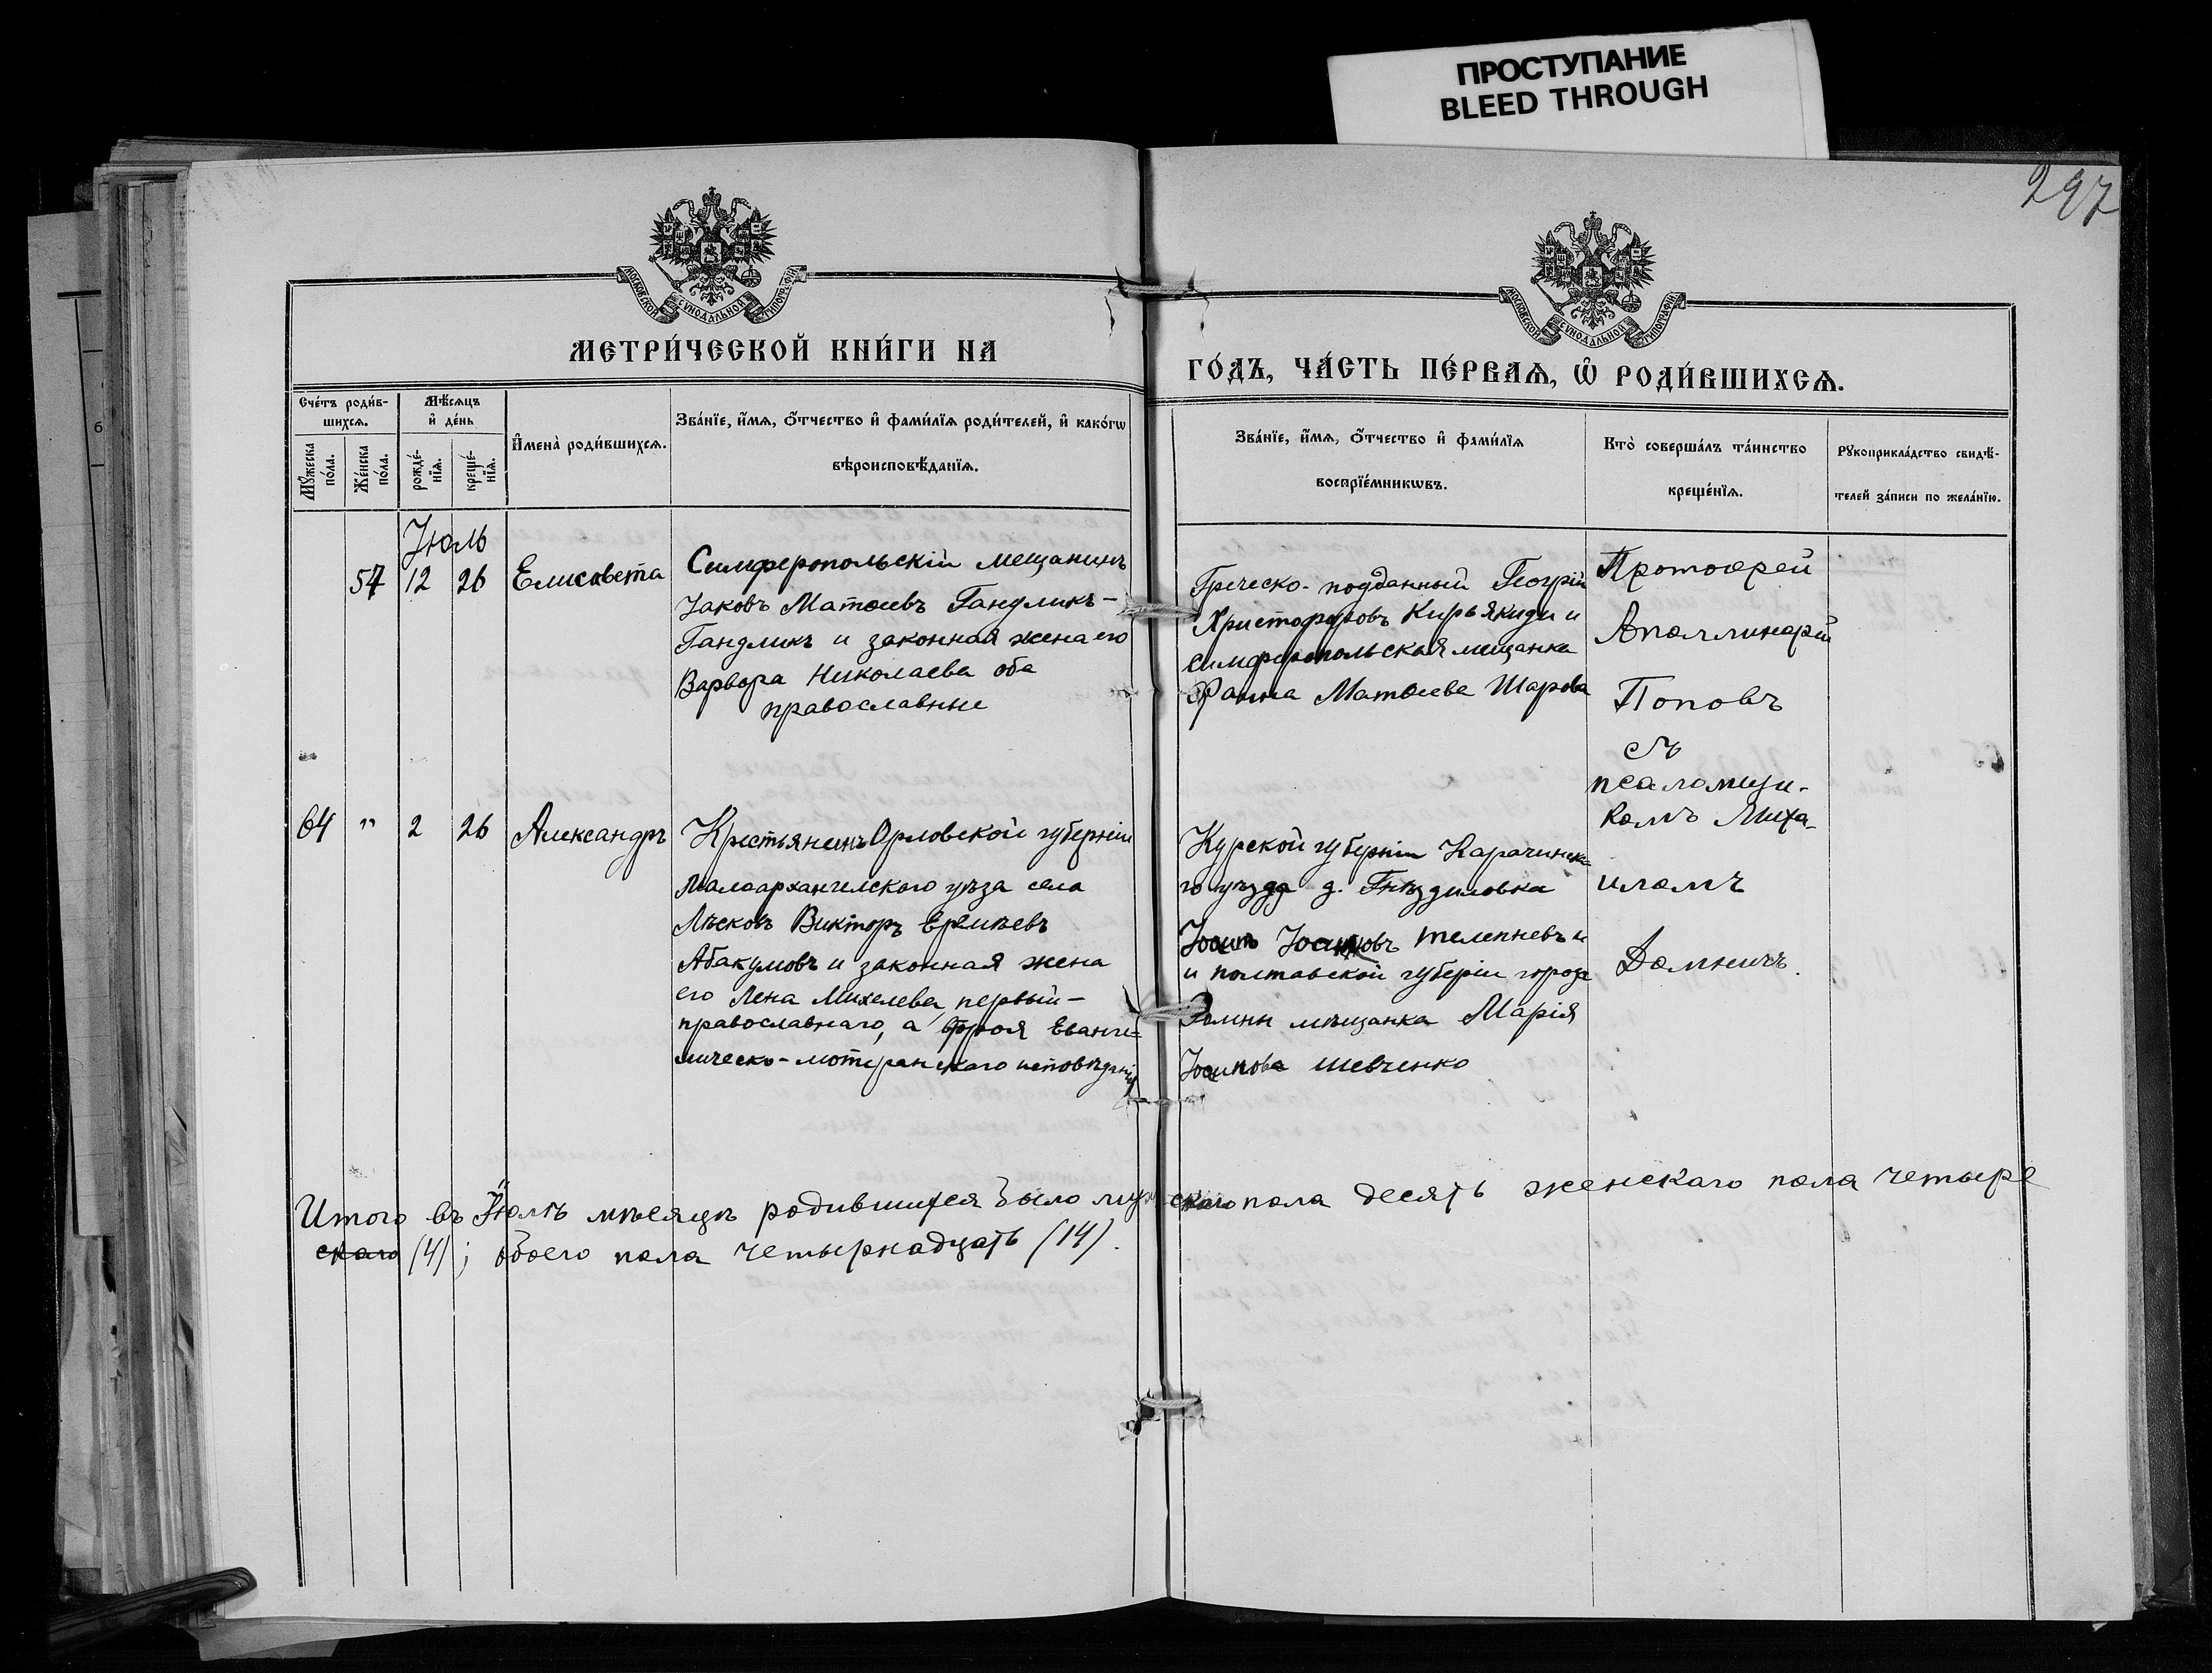 ПРОСТУПАНИЕ
BLEED THROUGH
297
МОСКОВСКОЙ СѴНОДАЛЬНОЙ ТИПОГРАФІИ
МОСКОВСКОЙ СѴНОДАЛЬНОЙ ТИПОГРАФІИ
МЕТРИ́ЧЕСКОЙ КНИ́ГИ НА
ГО́ДЪ, ЧА́СТЬ ПЕ́РВАѦ, Ѡ҆ РОДИ́ВШИХСѦ.
Сче́тъ роди́в-
шихсѧ.
Мѣ́сѧцъ
и҆ де́нь
Мꙋ́жеска по́ла.
Же́нска по́ла.
рожде́-
нїѧ.
креще́-
нїѧ.
И҆мена̀ роди́вшихсѧ.
Зва́нїе, и҆́мѧ, ѻ҆́тчество и҆ фами́лїѧ роди́телей, и҆ како́гѡ
вѣроисповѣ́данїѧ.
Зва́нїе, и҆́мѧ, ѻ҆́тчество и҆ фами́лїѧ
воспрїе́мникѡвъ.
Кто̀ соверша́лъ та́инство
креще́нїѧ.
Рꙋкоприкла́дство свидѣ́-
телей за́писи по жела́нїю.
Іюль
57 12 26 Елисавета
Симферопольскій мещанинъ
Іаковъ Матвеевъ Гандликъ-
Гандликъ и законная жена его
Варвара Николаева оба
православные
Греческо-подданный Георгій
Христофоровъ Кирьякиди и
симферопольская мещанка
Фаина Матвеева Шарова
Протоіерей
Аполлинарій
Поповъ
съ
псаломщи-
комъ Миха-
иломъ
Домничъ.
64 " 2 26 Александръ
Крестьянинъ Орловской губерніи
Малоархангелскаго уѣза села
Лѣсковъ Викторъ Еремѣевъ
Абакумовъ и законная жена
его Лена Михелева, первый-
православнаго, а вторая Еванге-
лическо-лютеранскаго исповѣданія
Курской губерніи Карачинска-
го уѣзда д. Гнѣздиловка
Іосипъ Іосиповъ Телепневъ и
и полтавской губеріи города
Ромны мѣщанка Марія
Іосипова Шевченко
Итого въ Іюлѣ мѣсяцѣ родившихся было мужскаго пола десять женскаго пола четыре
скаго (4); обоего пола четырнадцать (14).